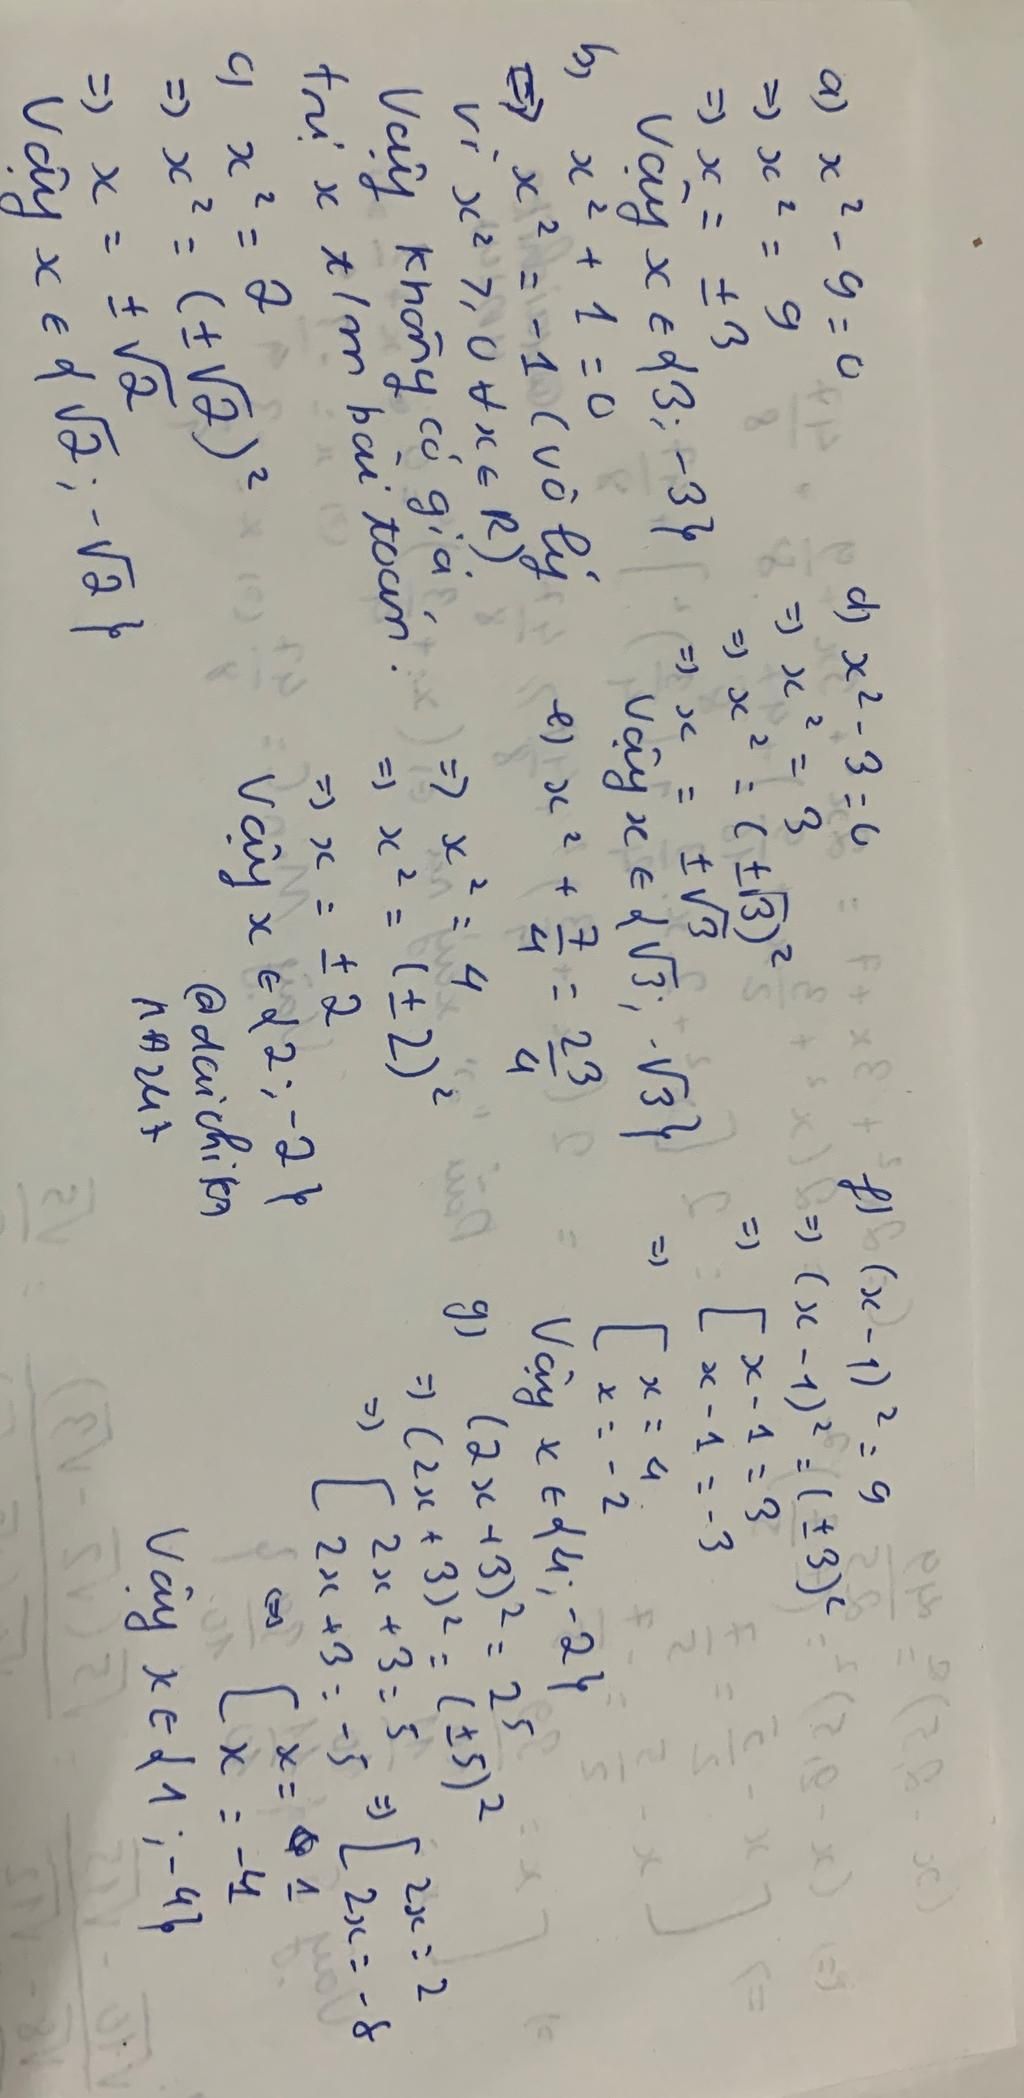 a) x² - 9 = 0
=> x² = 9
=> x = ±3
Vậy x ∈ {3; -3}
b) x² + 1 = 0
<=> x² = -1 (vô lý
vì x² ≥ 0 ∀x ∈ R)
Vậy không có giá
trị x t/m bài toán.
c) x² = 2
=> x² = (±√2)²
=> x = ±√2
Vậy x ∈ {√2; -√2}
d) x² - 3 = 0
=> x² = 3
=> x² = (±√3)²
=> x = ±√3
Vậy x ∈ {√3; -√3}
e) x² + 7/4 = 23/4
=> x² = 4
=> x² = (±2)²
=> x = ±2
Vậy x ∈ {2; -2}
f) (x - 1)² = 9
=> (x - 1)² = (±3)²
=> [ x - 1 = 3
x - 1 = -3
=> [ x = 4
x = -2
Vậy x ∈ {4; -2}
g) (2x + 3)² = 25
=> (2x + 3)² = (±5)²
=> [ 2x + 3 = 5 => [ 2x = 2
2x + 3 = -5 2x = -8
<=> [ x = 1
x = -4
Vậy x ∈ {1; -4}